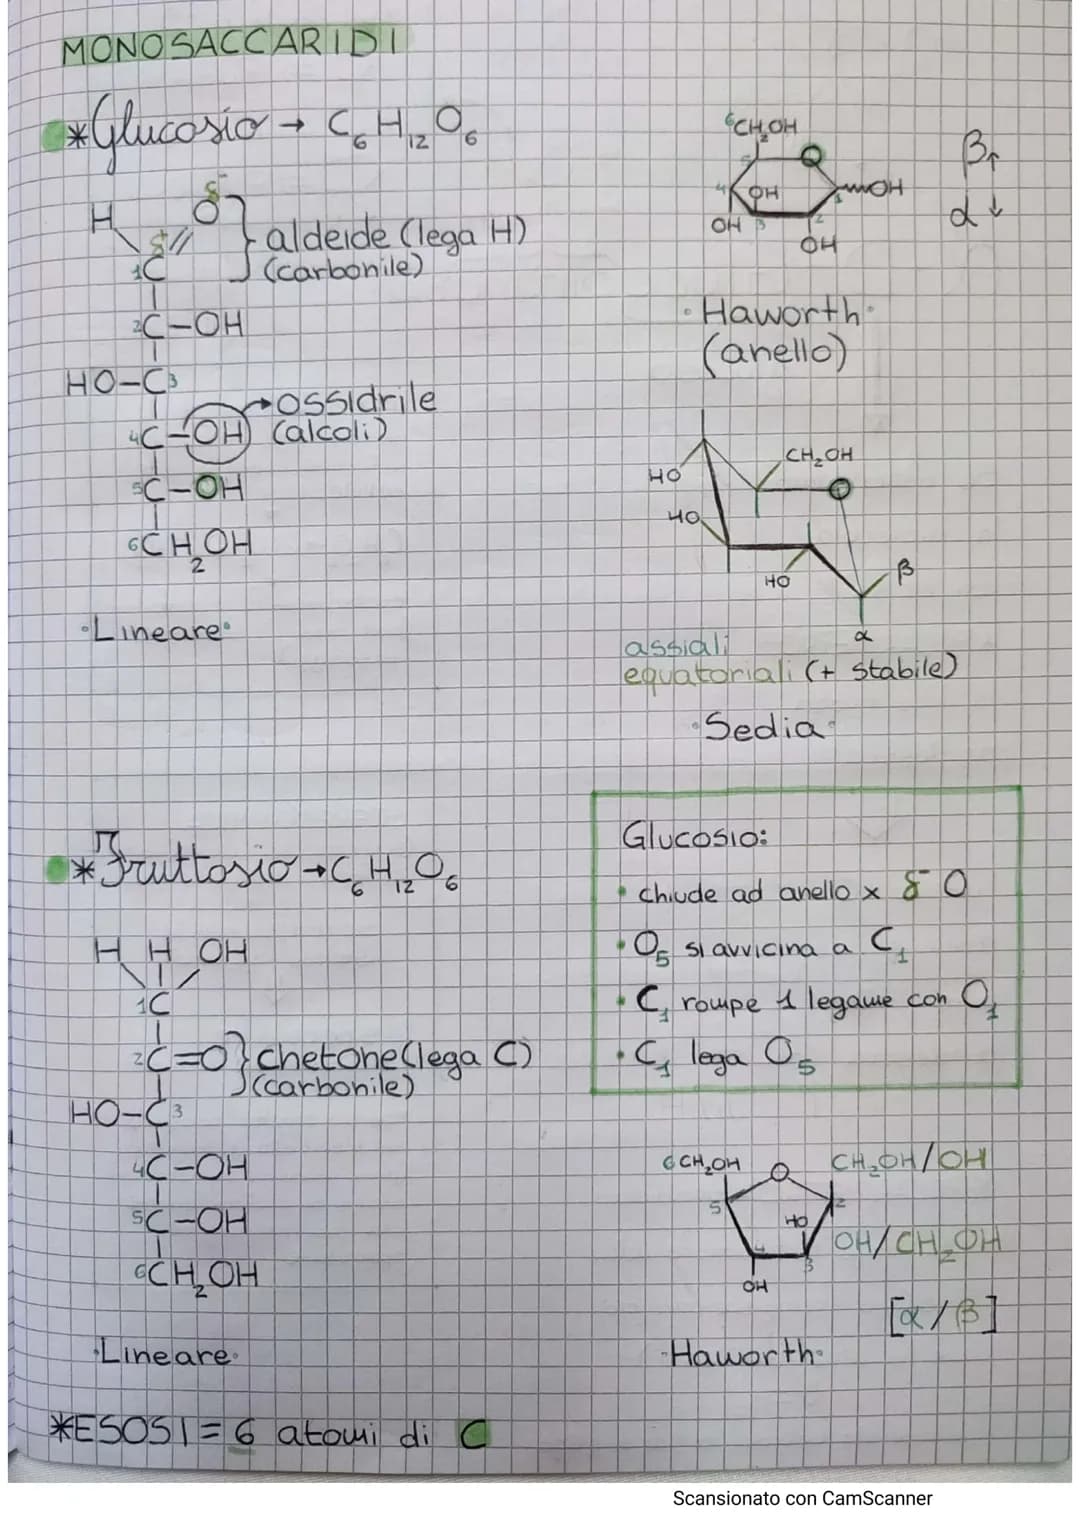 MONOSACCARIDI
*Glucosio → C6H12O6
H O δ-
δ+
1C
} aldeide (lega H)
(carbonile)
2C-OH
HO-C3
4C-OH → ossidrile
(alcoli)
5C-OH
6CH2OH
·Lineare·
6CH2OH
5 O
4 OH 1 OH
OH 3 2
OH
β↑
α↓
·Haworth·
(anello)
CH2OH
HO
O
HO
HO
β
α
assiali
equatoriali (+ stabile)
·Sedia·
*Fruttosio → C6H12O6
H H OH
1C
2C=O } chetone (lega C)
(carbonile)
HO-C3
4C-OH
5C-OH
6CH2OH
·Lineare·
Glucosio:
• chiude ad anello x δ- O
• O5 si avvicina a C1
• C1 rompe 1 legame con O1
• C1 lega O5
6CH2OH O CH2OH/OH
5 2
HO
OH/CH2OH
4 3
OH
[α/β]
·Haworth·
*ESOSI = 6 atomi di C
Scansionato con CamScanner